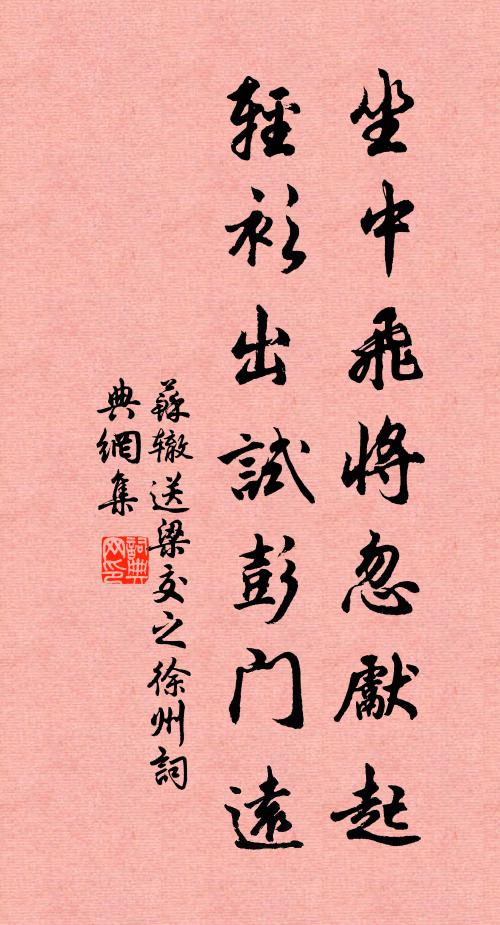 坐中飛將忽獻起
輕衫出試彭門遠
蘇轍送梁交之徐州詞
典網集
詞典
网印